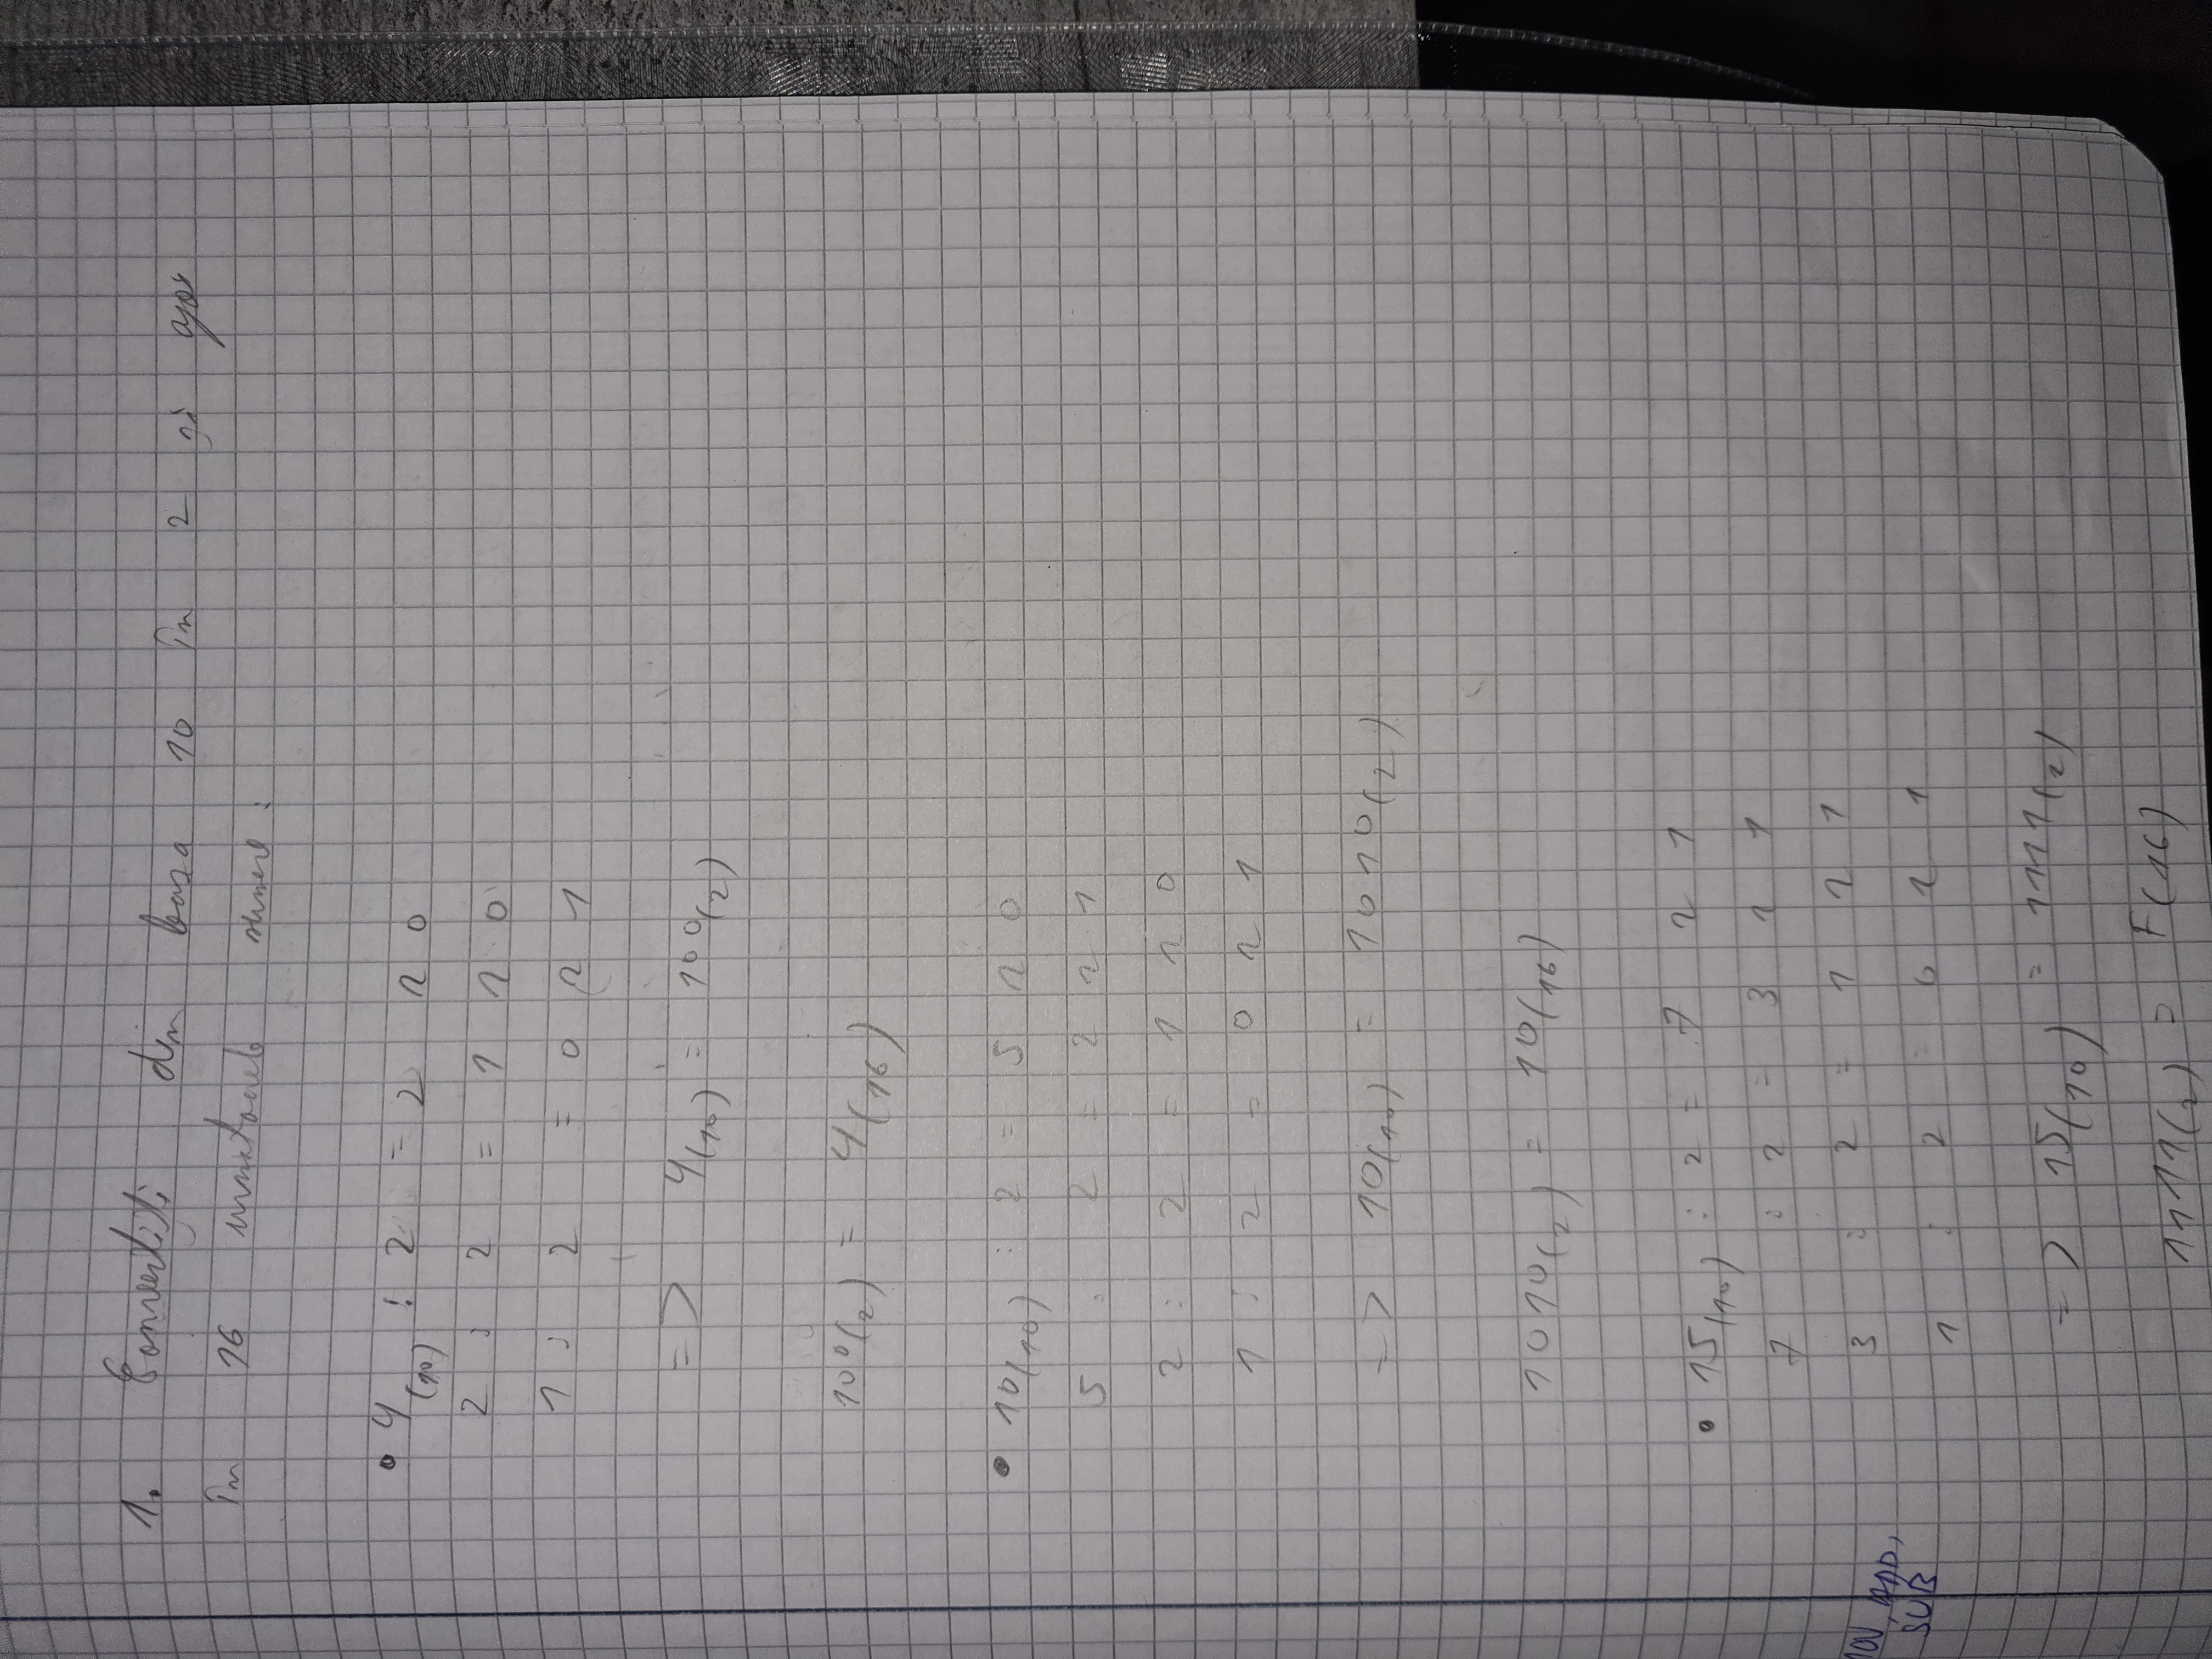 1. Convertiți din baza 10 în 2 și apoi
în 16 următoarele numere :
• 4(10) : 2 = 2 r 0
2 : 2 = 1 r 0
1 : 2 = 0 r 1
=> 4(10) = 100(2)
100(2) = 4(16)
• 10(10) : 2 = 5 r 0
5 : 2 = 2 r 1
2 : 2 = 1 r 0
1 : 2 = 0 r 1
=> 10(10) = 1010(2)
1010(2) = 10(16)
• 15(10) : 2 = 7 r 1
7 : 2 = 3 r 1
3 : 2 = 1 r 1
1 : 2 = 0 r 1
=> 15(10) = 1111(2)
1111(2) = F(16)
ADD,
SUB